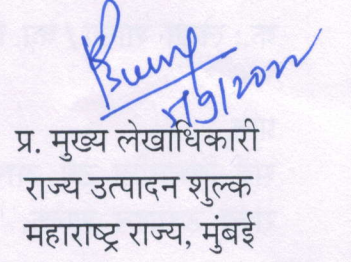 प्र. मुख्य लेखाधिकारी
राज्य उत्पादन शुल्क
महाराष्ट्र राज्य, मुंबई